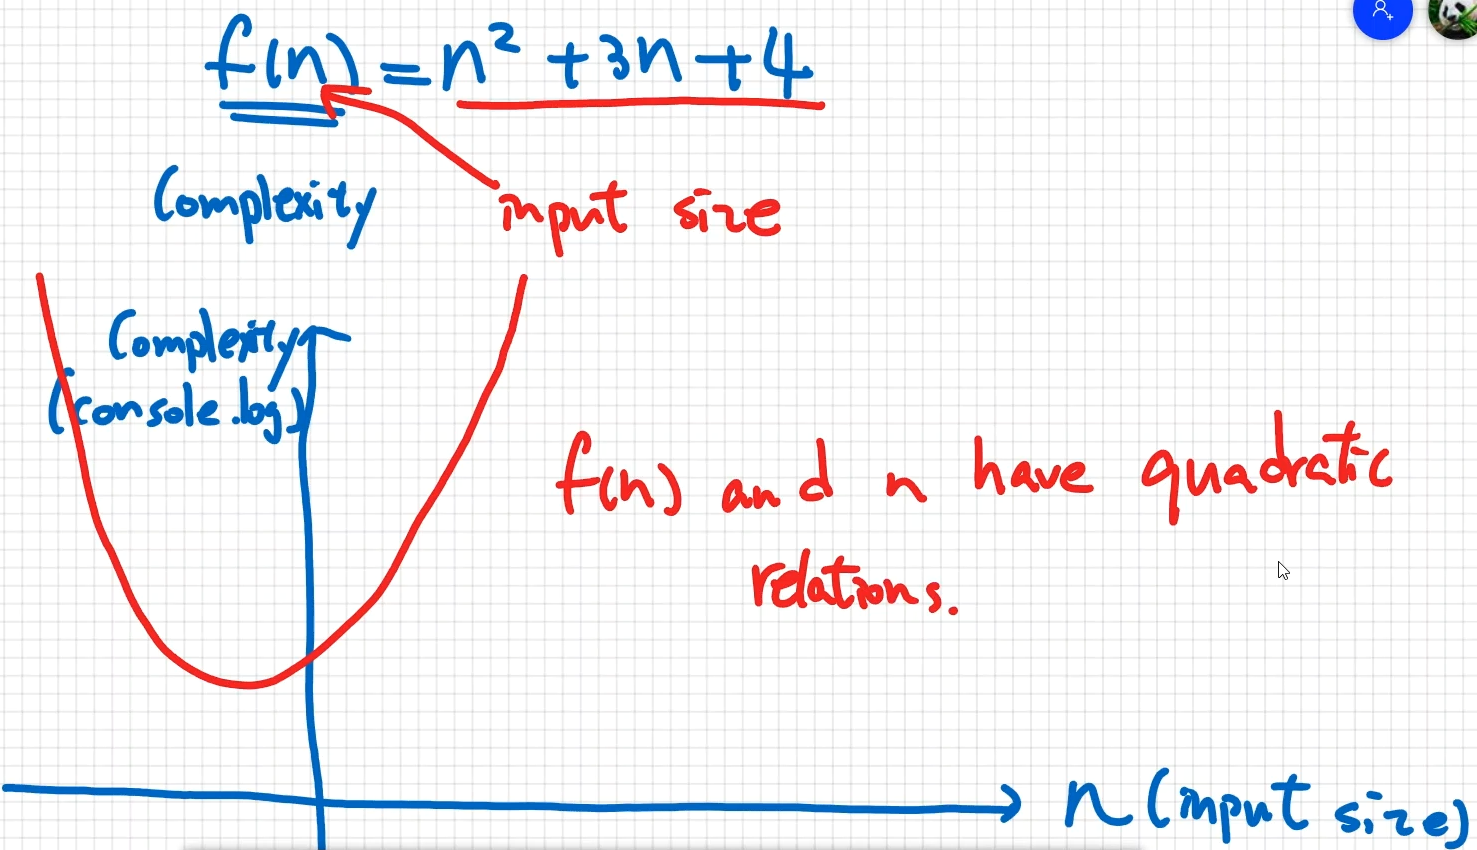 f(n) = n² + 3n + 4
Complexity
input size
Complexity
(console.log)
f(n) and n have quadratic
relations.
n (input size)